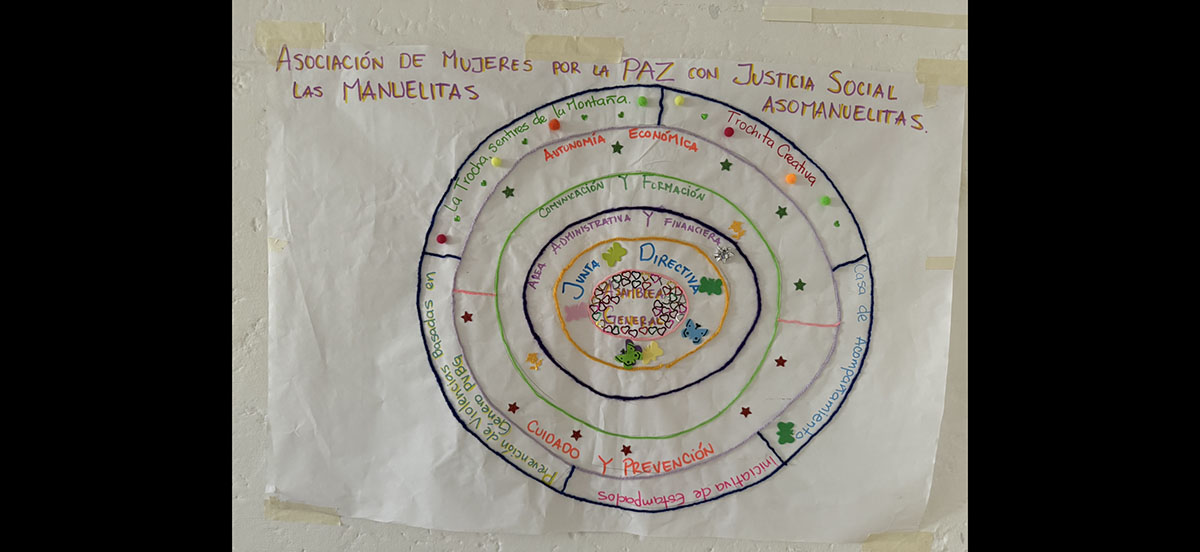 ASOCIACIÓN DE MUJERES POR LA PAZ CON JUSTICIA SOCIAL
LAS MANUELITAS ASOMANUELITAS.
La Trocha, sentires de la Montaña.
Trochita Creativa
Casa de Acompañamiento
Iniciativa de Estampados
Prevención de Violencias Basadas en
Genero PVBG
AUTONOMÍA ECONÓMICA
CUIDADO Y PREVENCIÓN
COMUNICACIÓN Y FORMACIÓN
AREA ADMINISTRATIVA Y FINANCIERA
JUNTA DIRECTIVA
ASAMBLEA
GENERAL